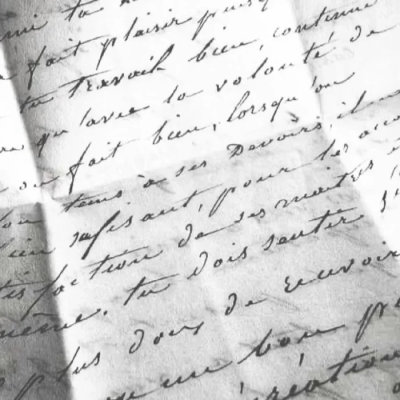 ta
fait plaisir
tu travail bien, continue
qu'avec la volonté de
fait bien, lorsqu'on
tems à ses Devoirs il
sufisant, pour les
faction de ses maitres
même, tu dois sentir
plus doux de recevoir
un bon